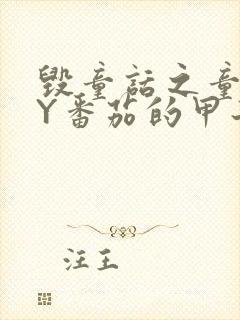 毁童话之童
Y番茄的甲
汪王